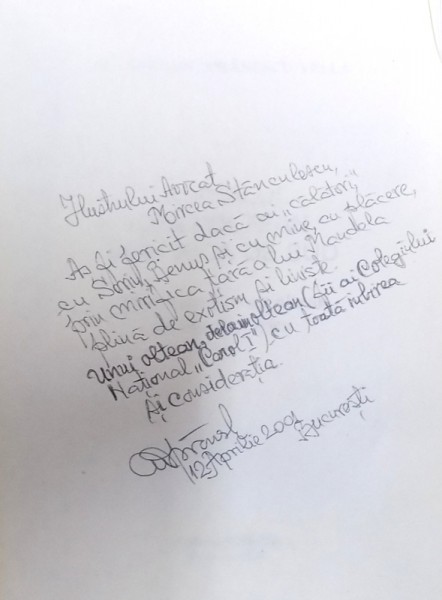 Ilustrului Avocat
Mircea Stănculescu,
Aș fi fericit dacă ai „călători”,
cu Soniuș, Benuș și cu mine, cu plăcere,
prin mirifica țară a lui Mandela
plină de exotism și liniște.
Unui oltean, dela un oltean (fii ai Colegiului
Național „Carol I”) cu toată iubirea
și considerația.
12 Aprilie 2001
București